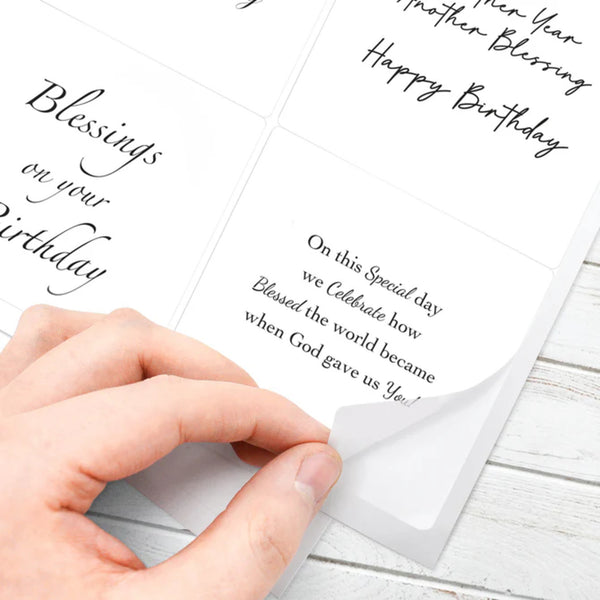 Another Blessing
Happy Birthday
Blessings
on your
Birthday
On this Special day
we Celebrate how
Blessed the world became
when God gave us You!